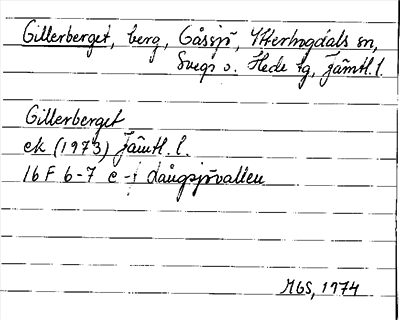 Gillerberget, berg, Gåssjö, Ytterhogdals sn,
Svegs o. Hede tg, Jämtl. l.
Gillerberget
ek (1973) Jämtl. l.
16 F 6-7 e-i Långsjövallen
MGS, 1974